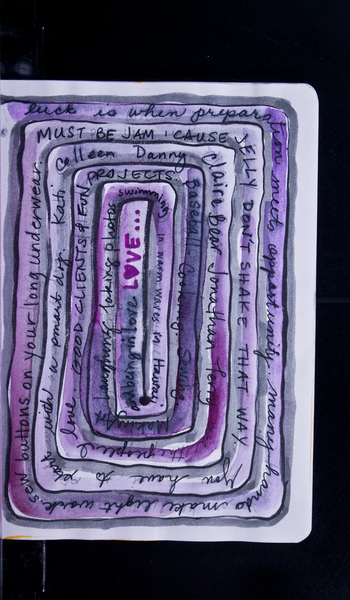 luck is when preparation meets opportunity many hands make light work sew buttons on your long underwear
MUST BE JAM 'CAUSE JELLY DON'T SHAKE THAT WAY.
you have to paint with a smart dog. Kati
Colleen Danny Claire Bear Jonathan Tory
the people I love GOOD CLIENTS & FUN PROJECTS
Baseball Cooking! Smiling
Making Art laughing taking photos
swimming in warm waves in Hawaii
and being in love
LOVE...